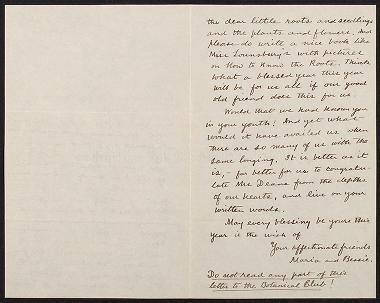 the dear little roots and seedlings
and the plants and flowers. And
please do write a nice book like
Miss Lounsberry's with pictures
on How to Know the Roots. Think
what a blessed year this year
will be for us all if our good
old friend does this for us.
Would that we had known you
in your youth! And yet what
would it have availed us when
there are so many of us with the
same longing. It is better as it
is, – far better for us to congratu-
late Mrs Deane from the depths
of our hearts, and live on your
written words.
May every blessing be yours this
year is the wish of
Your affectionate friends
Maria and Bessie.
Do not read any part of this
letter to the Botanical Club!